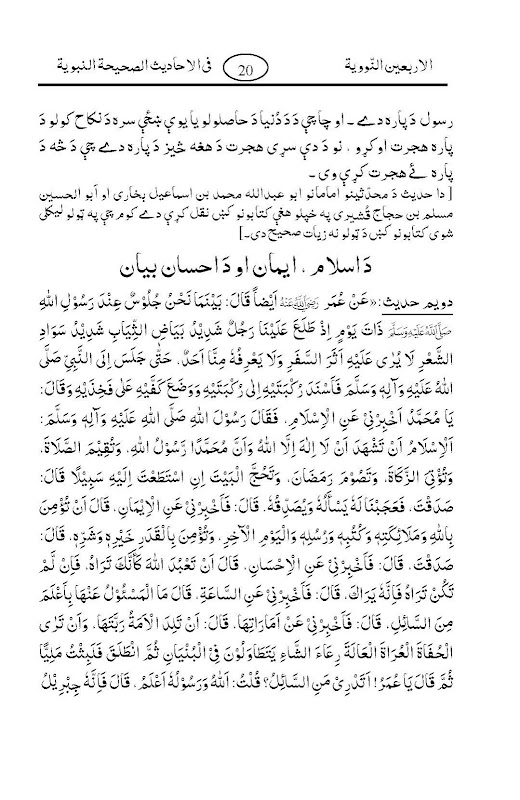 الاربعين النّووية 20 فى الاحاديث الصحيحة النبوية
رسول دَ پاره دے ۔ او چا چې دَ دَ دُنيا دَ حاصلولو يا يوې ښځې سره دَ نکاح کولو دَ
پاره هجرت اوکړو ، نو دَ دې سړى هجرت دَ هغه څيز دَ پاره دے چې دَ څه دَ
پاره ئے هجرت کړې وى ۔
[ دا حديث دَ محدّثينو امامانو ابو عبدالله محمد بن اسماعيل بخارى او ابو الحسين
مسلم بن حجاج قُشيرى په خپلو هغې کتابونو کښ نقل کړې دے کوم چې په ټولو ليکلى
شوى کتابونو کښ دَ ټولو نه زيات صحيح دى۔]
دَ اسلام ، ايمان او دَ احسان بيان
دويم حديث: «عَنْ عُمَر رَضِيَ اللهُ عَنْهُ اَيْضاً قَالَ: بَيْنَمَا نَحْنُ جُلُوْسٌ عِنْدَ رَسُوْلِ اللهِ
صَلَّى اللهُ عَلَيْهِ وَسَلَّم ذَاتَ يَوْمٍ اِذْ طَلَعَ عَلَيْنَا رَجُلٌ شَدِيْدُ بَيَاضِ الثِّيَابِ شَدِيْدُ سَوَادِ
الشَّعْرِ لَا يُرٰى عَلَيْهِ اَثَرُ السَّفَرِ وَلَا يَعْرِفُهٗ مِنَّا اَحَدٌ، حَتّٰى جَلَسَ اِلَى النَّبِيِّ صَلَّى
اللهُ عَلَيْهِ وَاٰلِهٖ وَسَلَّمَ فَاَسْنَدَ رُكْبَتَيْهِ اِلٰى رُكْبَتَيْهِ وَوَضَعَ كَفَّيْهِ عَلٰى فَخِذَيْهِ وَقَالَ:
يَا مُحَمَّدُ اَخْبِرْنِيْ عَنِ الْاِسْلَامِ، فَقَالَ رَسُوْلُ اللهِ صَلَّى اللهُ عَلَيْهِ وَاٰلِهٖ وَسَلَّمَ:
اَلْاِسْلَامُ اَنْ تَشْهَدَ اَنْ لَا اِلٰهَ اِلَّا اللهُ وَاَنَّ مُحَمَّدًا رَّسُوْلُ اللهِ، وَتُقِيْمَ الصَّلَاةَ،
وَتُؤْتِيَ الزَّكَاةَ، وَتَصُوْمَ رَمَضَانَ، وَتَحُجَّ الْبَيْتَ اِنِ اسْتَطَعْتَ اِلَيْهِ سَبِيْلًا قَالَ:
صَدَقْتَ، فَعَجِبْنَا لَهٗ يَسْأَلُهٗ وَيُصَدِّقُهٗ، قَالَ: فَاَخْبِرْنِيْ عَنِ الْاِيْمَانِ، قَالَ اَنْ تُؤْمِنَ
بِاللهِ وَمَلَائِكَتِهٖ وَكُتُبِهٖ وَرُسُلِهٖ وَالْيَوْمِ الْآخِرِ، وَتُؤْمِنَ بِالْقَدَرِ خَيْرِهٖ وَشَرِّهٖ، قَالَ:
صَدَقْتَ، قَالَ: فَاَخْبِرْنِيْ عَنِ الْاِحْسَانِ، قَالَ اَنْ تَعْبُدَ اللهَ كَأَنَّكَ تَرَاهُ، فَاِنْ لَمْ
تَكُنْ تَرَاهُ فَاِنَّهٗ يَرَاكَ، قَالَ: فَاَخْبِرْنِيْ عَنِ السَّاعَةِ، قَالَ مَا الْمَسْئُوْلُ عَنْهَا بِاَعْلَمَ
مِنَ السَّائِلِ، قَالَ: فَاَخْبِرْنِيْ عَنْ اَمَارَاتِهَا، قَالَ: اَنْ تَلِدَ الْاَمَةُ رَبَّتَهَا، وَاَنْ تَرٰى
الْحُفَاةَ الْعُرَاةَ الْعَالَةَ رِعَاءَ الشَّاءِ يَتَطَاوَلُوْنَ فِي الْبُنْيَانِ ثُمَّ انْطَلَقَ فَلَبِثْتُ مَلِيًّا
ثُمَّ قَالَ يَا عُمَرُ! اَتَدْرِيْ مَنِ السَّائِلُ؟ قُلْتُ: اَللهُ وَرَسُوْلُهٗ اَعْلَمُ، قَالَ فَاِنَّهٗ جِبْرِيْلُ